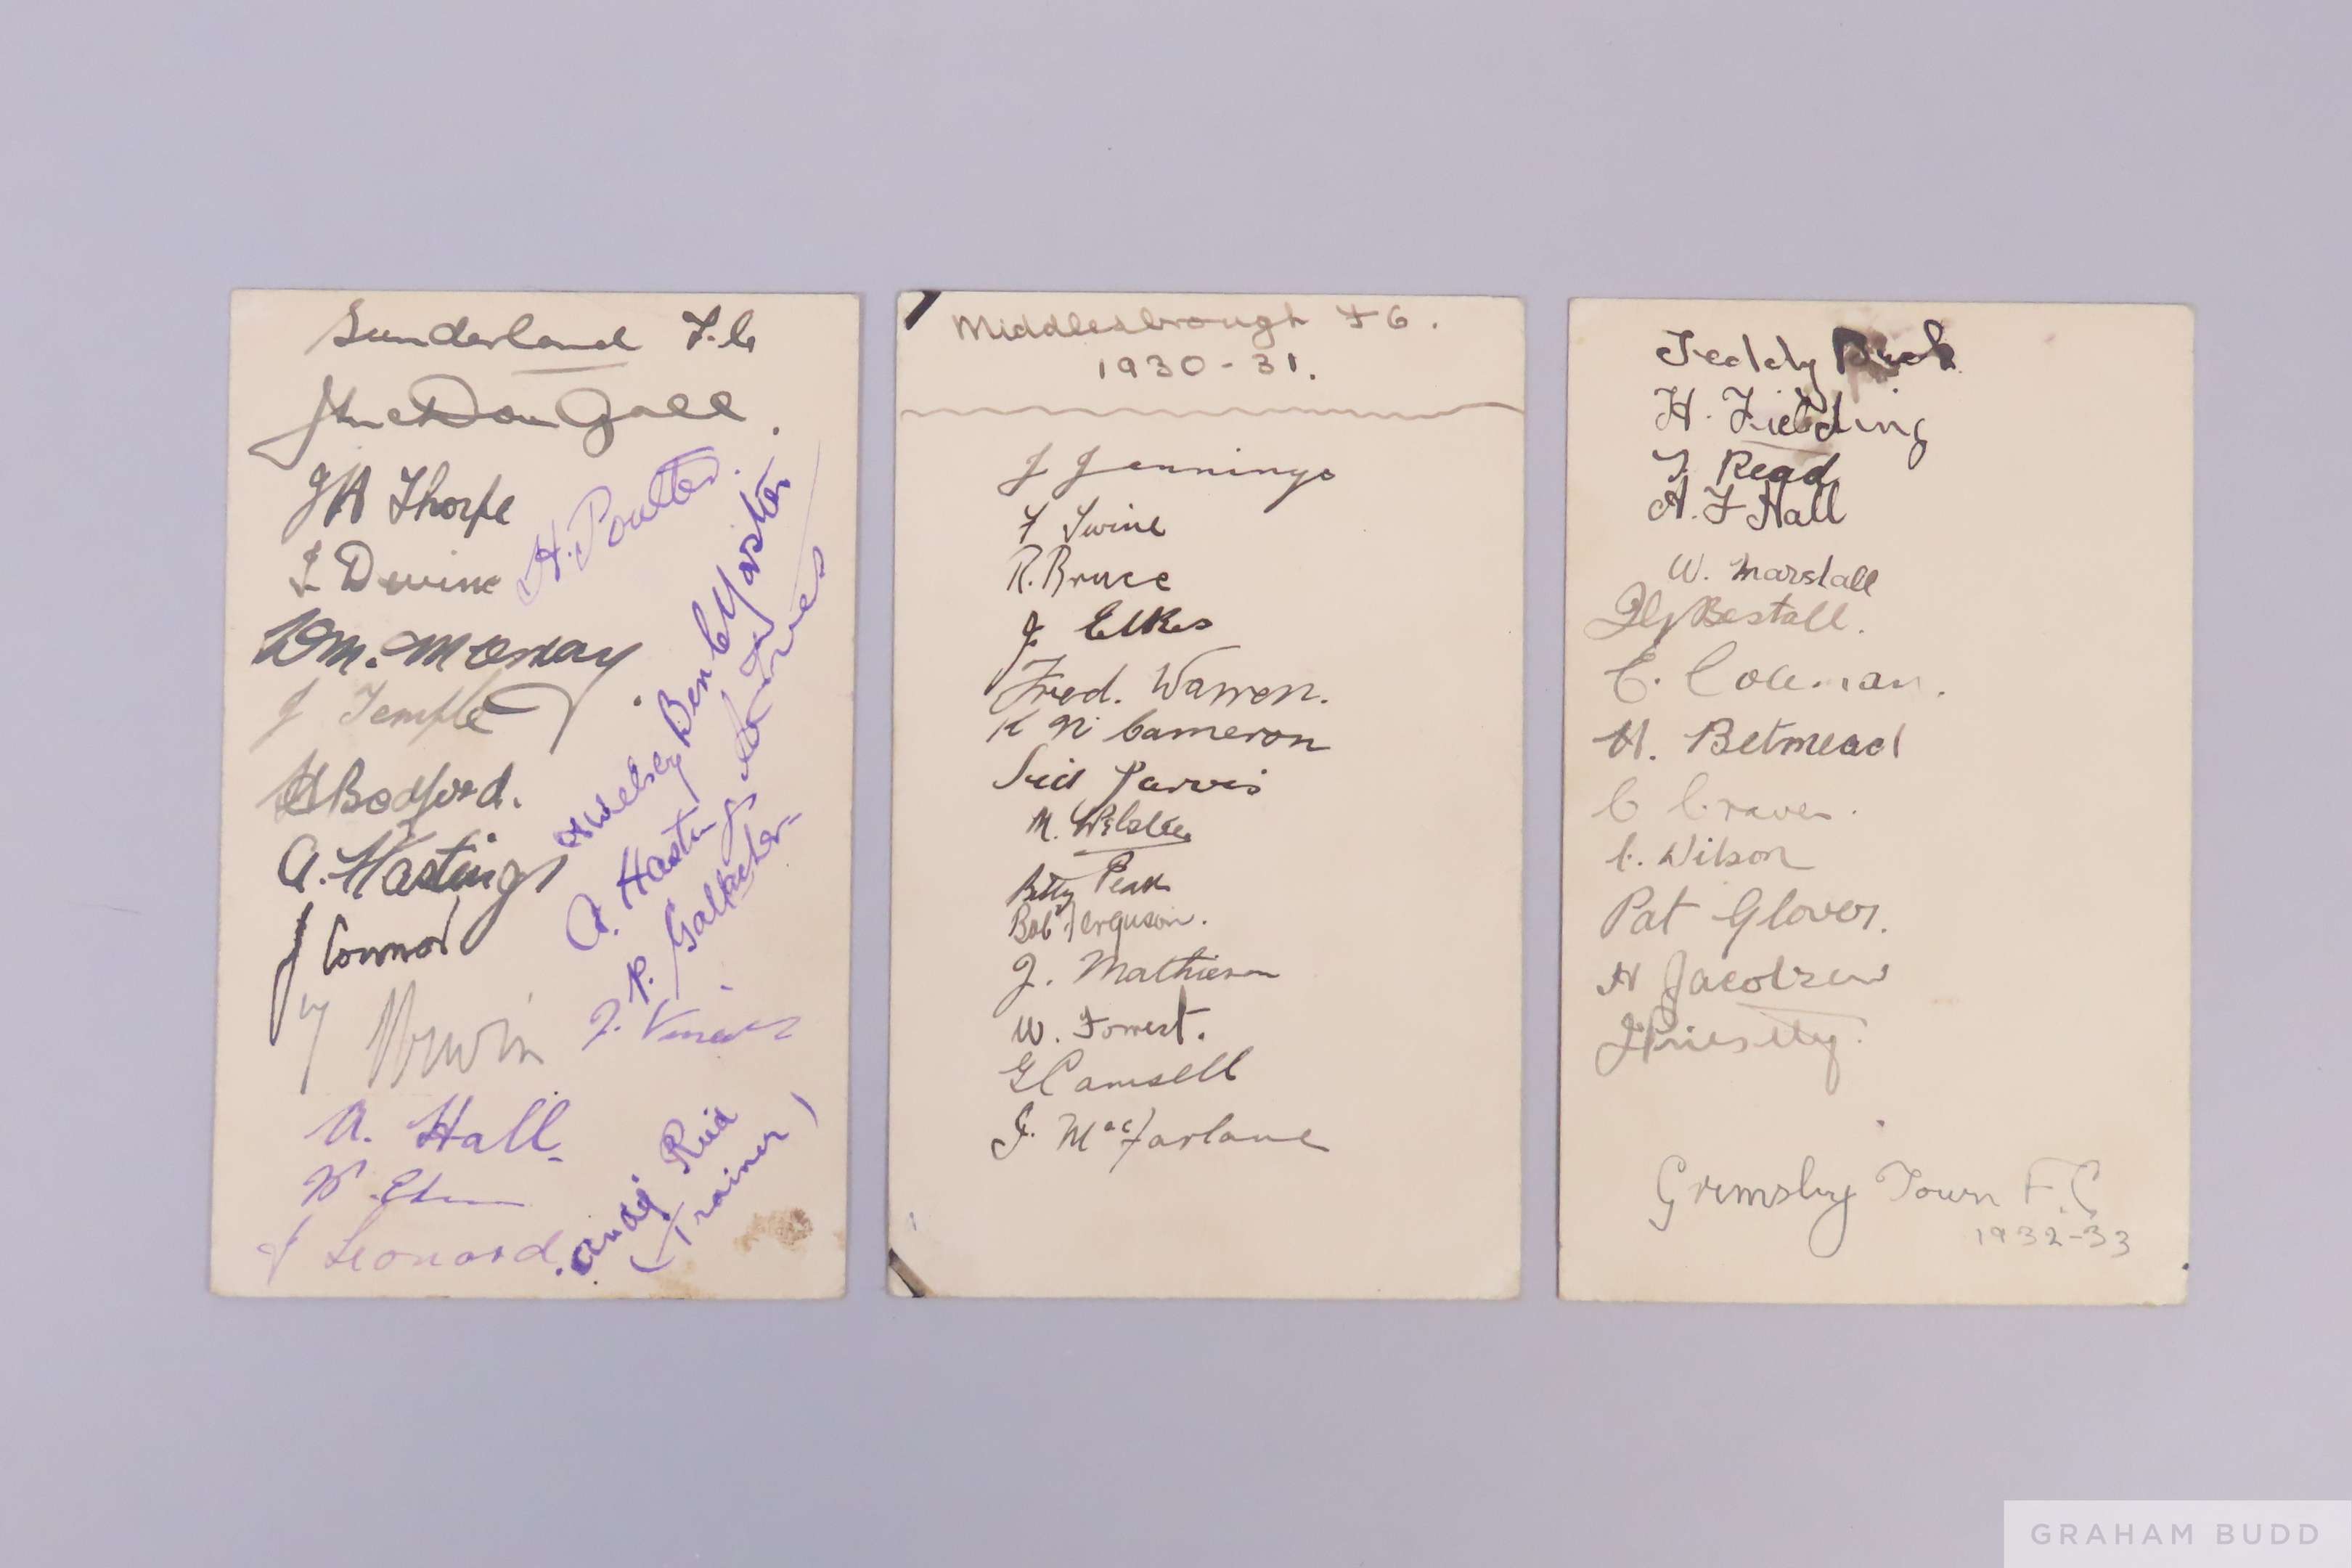 Sunderland F.C
J McDouGall.
JA Thorpe
J Devine
Wm. Murray
J Temple
H Bedford.
A. Hastings
J Connor
Urwin
A. Hall.
J Leonard.
H. Poulter.
Ben C Yorston
A. Hastings
P. Gallacher
J. Vinall
Andy Reid
(Trainer)
Middlesbrough F C.
1930-31.
J Jennings
R. Bruce
J. Elkes
Fred. Warren.
K Mc Cameron
Sid Jarvis
M. Webster
Bob Ferguson.
J. Mathieson
W. Forrest.
G Camsell
J. MacFarlane
Teddy Buck
H. Fielding
T. Read
A. F Hall
W. Marshall
J G Bestall.
E. Coleman.
H. Betmead
C Craven.
C. Wilson
Pat Glover.
H Jacobson
J Priestley.
Grimsby Town F.C
1932-33
GRAHAM BUDD